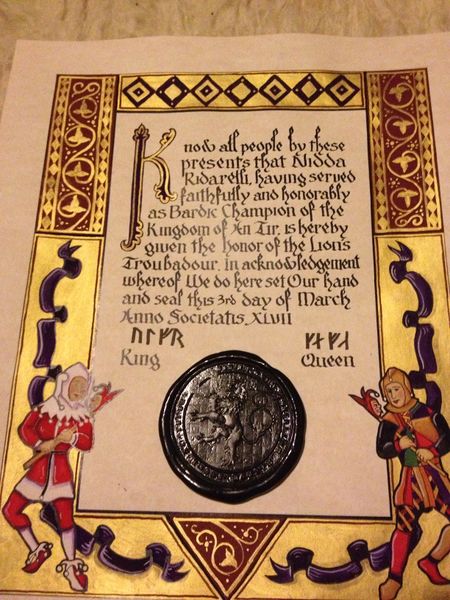 Know all people by these
presents that Nidda
Ridarelli, having served
faithfully and honorably
as Bardic Champion of the
Kingdom of An Tir, is hereby
given the honor of the Lion's
Troubadour, in acknowledgement
whereof We do here set Our hand
and seal this 3rd day of March
Anno Societatis XLVII
ᚢᛚᚠᚱ
King Queen